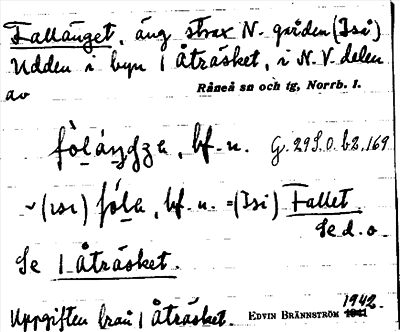 Fallänget, äng strax N. gården (Isi)
Udden i byn 1 Åträsket, i N.V. delen
av
Råneå sn och tg, Norrb. l.
bf. n. G. 29 S.O. b2, 169
~ (ısı) bf. n. = (Isi) Fallet.
Se d. o.
Se 1 Åträsket.
1942.
Uppgiften från 1 Åträsket. EDVIN BRÄNNSTRÖM 1941